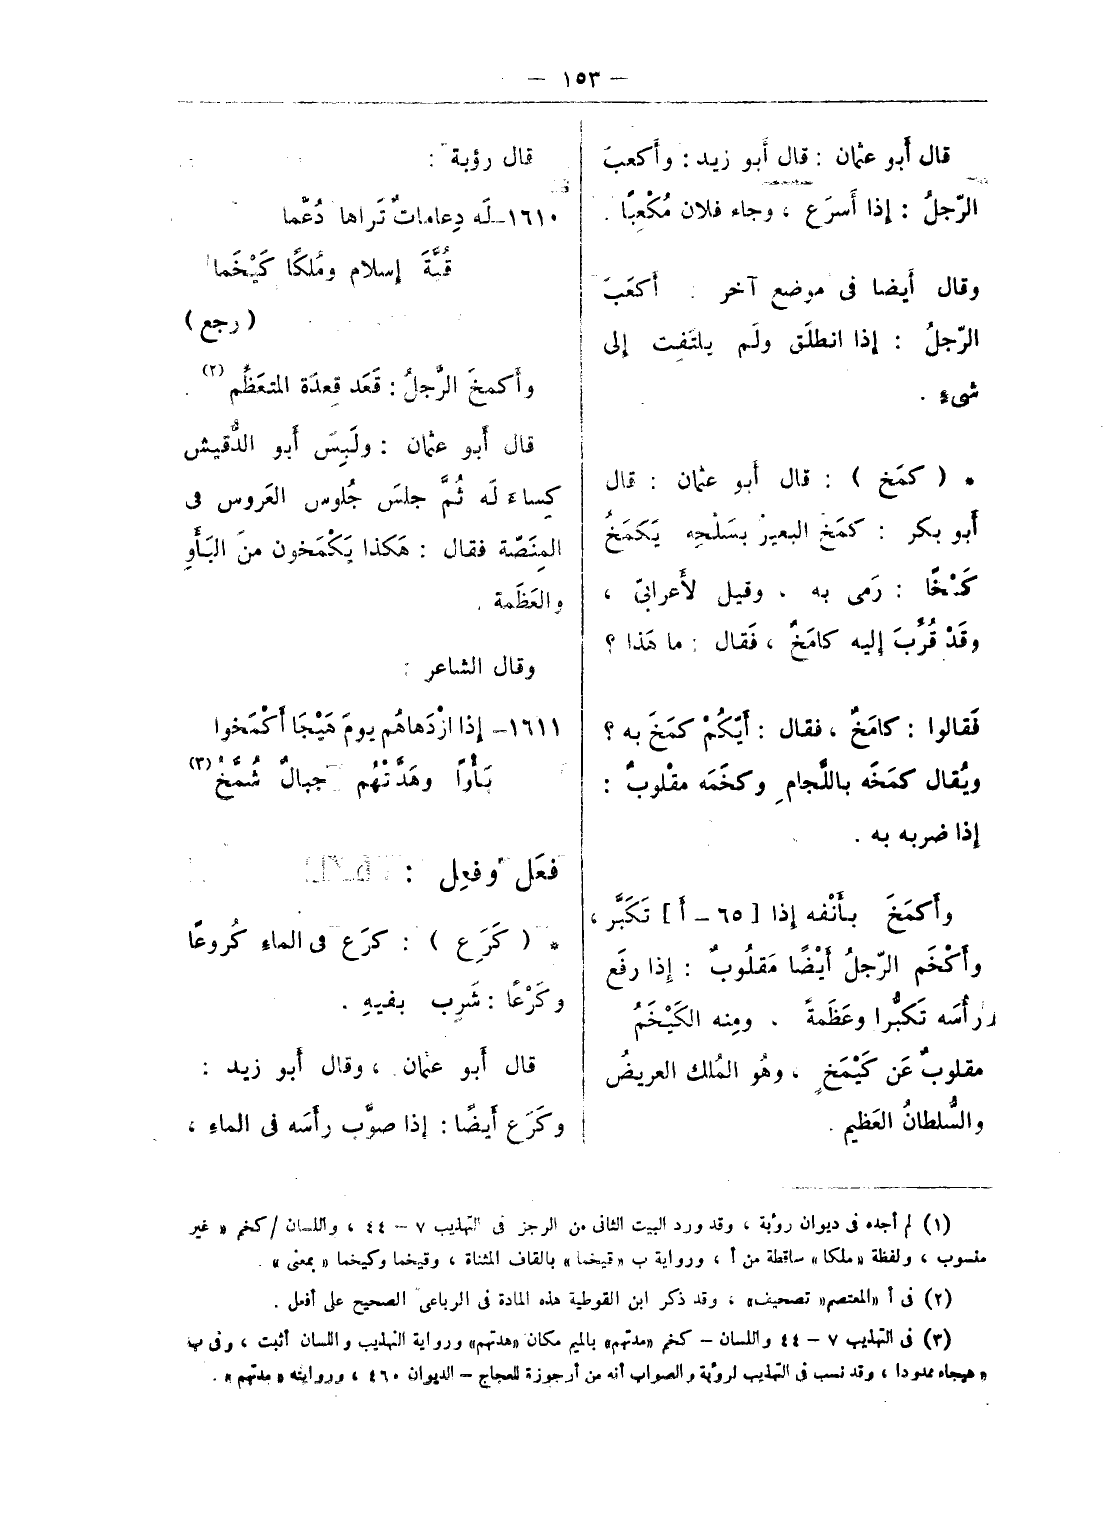 — ١٥٣ —
قال أَبو عثمان : قال أَبو زيد : وأَكعبَ
الرّجلُ : إذا أَسرَع ، وجاء فلان مُكْعِبًا .
وقال أَيضا فى موضع آخر : أَكعَبَ
الرّجلُ : إذا انطلَق ولَم يلتَفِت إلى
شىءٍ .
* ( كمَخ ) : قال أَبو عثمان : قال
أَبو بكر : كمَخ البعيرُ بسَلْحِه يَكمَخُ
كَمْخًا : رَمى به . وقيل لأَعرابىّ ،
وقَدْ قُرِّبَ إليه كامَخٌ ، فَقال : ما هَذا ؟
فَقالوا : كامَخٌ ، فقال : أَيّكُمْ كمَخَ به ؟
ويُقال كمَخَه باللِّجام وكخَمَه مقْلوبٌ :
إذا ضربه به .
وأَكمَخَ بأَنْفه إذا [ ٦٥ – أ ] تَكَبَّر ،
وأَكْخَم الرّجلُ أَيْضًا مَقلُوبٌ : إذا رفَع
رأْسَه تَكبُّرا وعَظَمةً . ومِنه الكَيْخَمُ
مقلوبٌ عَن كَيْمَخٍ ، وهُو المُلك العريضُ
والسُّلطانُ العَظيم .
قال رؤبة :
١٦١٠– لَه دِعاماتٌ تَراها دُعَّما
قُبَّةَ إسلام ومُلكًا كَيْخَما
( رجع )
وأَكمخَ الرَّجلُ : قَعَد قِعدَة المتعَظِّم (٢) .
قال أَبو عثمان : ولَبِسَ أَبو الدُّقيش
كِساءً لَه ثُمَّ جلسَ جُلوس العَروس فى
المِنَصّة فقال : هَكذا يَكْمَخون منَ البَأْوِ
والعَظَمة .
وقال الشاعر :
١٦١١– إذا ازْدَهاهُم يومَ هَيْجَا أَكْمَخوا
بَأْوًا وهَدَّتْهُم جبالٌ شُمَّخُ (٣)
فعَل وفعِل :
* ( كَرَع ) : كرَع فى الماءِ كُروعًا
وكَرْعًا : شَرِب بفيهِ .
قال أَبو عثمان ، وقال أَبو زيد :
وكَرَع أَيضًا : إذا صوَّب رأْسَه فى الماءِ ،
(١) لم أجده فى ديوان رؤبة ، وقد ورد البيت الثانى من الرجز فى التهذيب ٧ – ٤٤ ، واللسان / كخم « غير
منسوب ، ولفظة «ملكا» ساقطة من أ ، ورواية ب «قيخما» بالقاف المثناة ، وقيخما وكيخما « بمعنى » .
(٢) فى أ «المعتصم» تصحيف» ، وقد ذكر ابن القوطية هذه المادة فى الرباعى الصحيح على أفعل .
(٣) فى التهذيب ٧ – ٤٤ واللسان – كخم «مدتهم» بالميم مكان «هدتهم» ورواية التهذيب واللسان أثبت ، وفى ب
« هيجاء ممدودا ، وقد نسب فى التهذيب لرؤبة والصواب أنه من أرجوزة للعجاج – الديوان ٤٦٠ ، وروايته « مدتهم » .